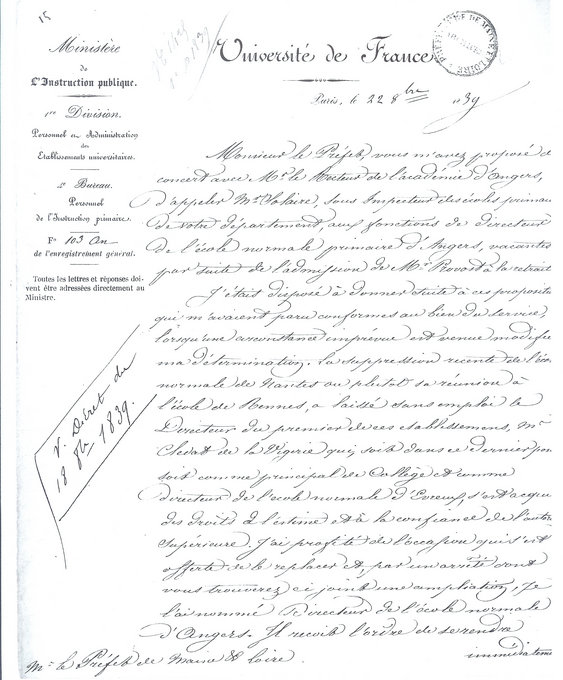 15
Ministère
de
L'Instruction publique.
1re Division.
Personnel et Administration
des
Etablissements universitaires.
2e Bureau.
Personnel
de l'Instruction primaire.
No 103 An
de l'enregistrement général.
Toutes les lettres et réponses doi-
vent être adressées directement au
Ministre.
V. Décret du
18 8bre 1839.
Université de France
PRÉFECTURE DE MAINE ET LOIRE
Paris, le 22 8bre 1839
Monsieur le Préfet, vous m'avez proposé de
concert avec Mr le Recteur de l'académie d'Angers,
d'appeler Mr Solaire, sous Inspecteur des écoles primai
de votre département aux fonctions de directeur
de l'école normale primaire d'Angers, vacantes
par suite de l'admission de Mr Provost à la retrait
J'étais disposé à donner suite à ces propositi
qui m'avaient paru conformes au bien du service,
lorsqu'une circonstance imprévue est venue modifie
ma détermination. La suppression recente de l'éco
normale de Nantes ou plutôt sa réunion à
l'école de Rennes, a laissé sans emploi le
Directeur du premier de ces établissemens, Mr
de la Vigerie qui, soit dans ce dernier pos
soit comme principal de Collège et comme
directeur de l'école normale d'Evreux, s'est acqui
des droits à l'estime et à la confiance de l'autori
Supérieure. J'ai profité de l'occasion qui s'est
offerte de le replacer et, par un arrêté dont
vous trouverez ci joint une ampliation, Je
l'ai nommé Directeur de l'école normale
d'Angers. Il reçoit l'ordre de se rendre
immédiateme
Mr le Préfet de Maine & Loire.